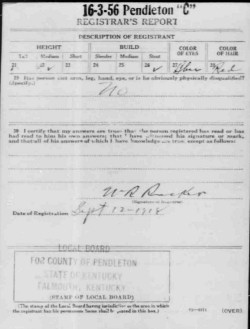 16-3-56 Pendleton "C"
REGISTRAR'S REPORT
DESCRIPTION OF REGISTRANT
HEIGHT BUILD COLOR OF EYES COLOR OF HAIR
Tall Medium Short Slender Medium Stout
21 22 23 24 25 26 27 28
29 Has person lost arm, leg, hand, eye, or is he obviously physically disqualified?
(Specify.)
No
30 I certify that my answers are true; that the person registered has read or has
had read to him his own answers; that I have witnessed his signature or mark,
and that all of his answers of which I have knowledge are true, except as follows:
Date of Registration Sept 12-1918
LOCAL BOARD
FOR COUNTY OF PENDLETON
STATE OF KENTUCKY
FALMOUTH, KENTUCKY
(STAMP OF LOCAL BOARD)
(The stamp of the Local Board having jurisdiction of the area in which
the registrant has his permanent home shall be placed in this box.)